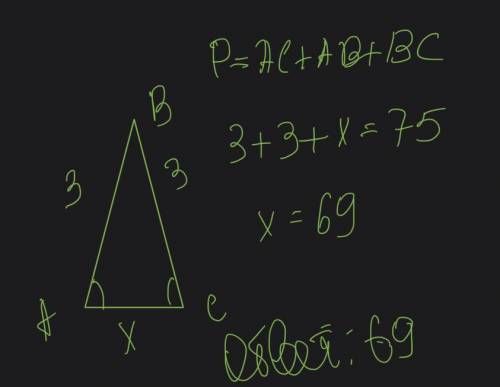 P=AC+AB+BC
B
3+3+x=75
3
3
x=69
A
C
x
Ответ: 69